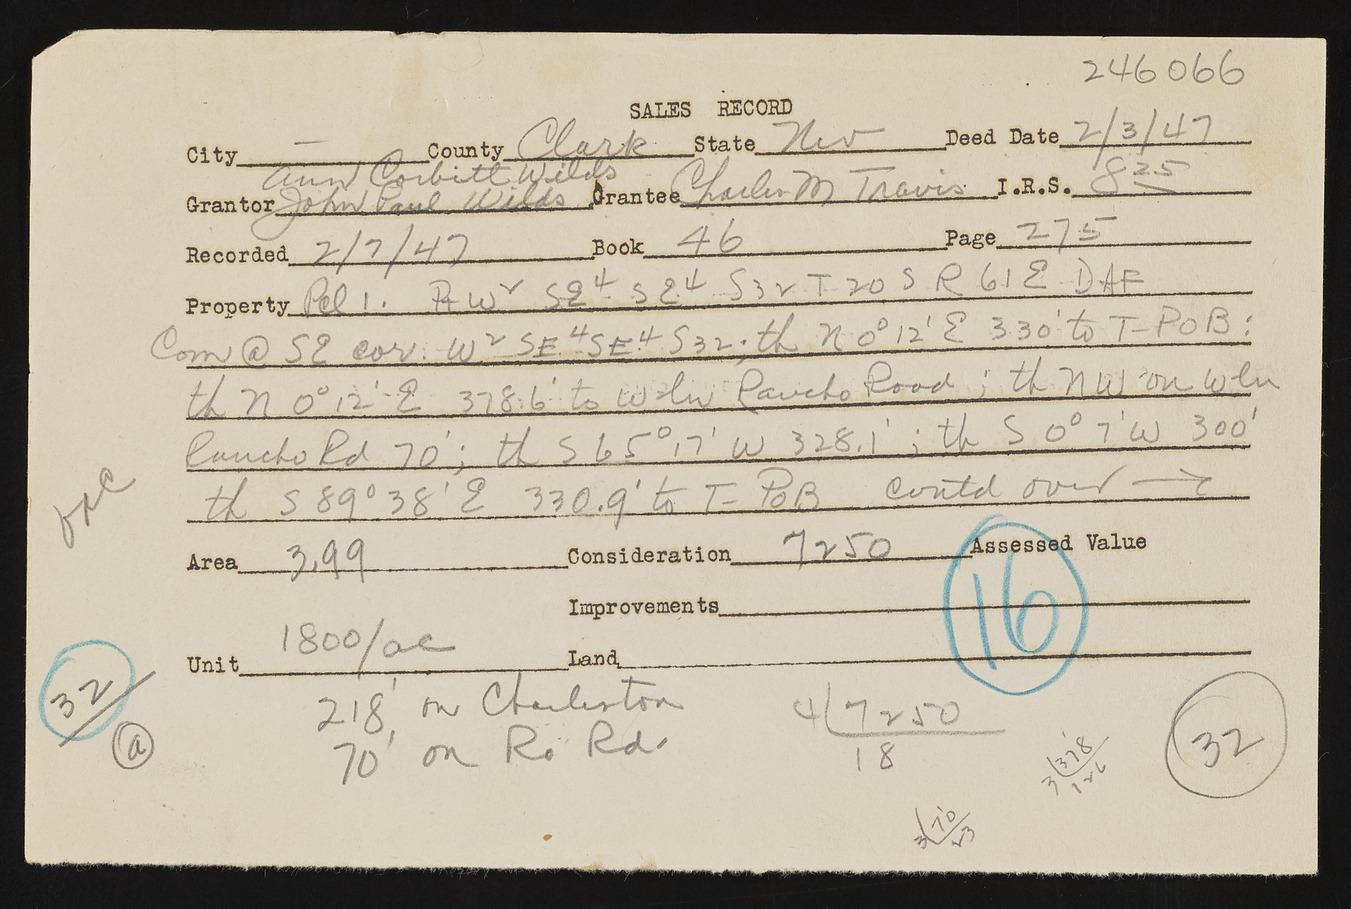 246066
SALES RECORD
City — County Clark State Nev Deed Date 2/3/47
Ann Corbitt Wilds
Grantor John Paul Wilds Grantee Charles M Travis I.R.S. 8 25
Recorded 2/7/47 Book 46 Page 275
Property Pcl 1. Pt W2 SE4 SE4 S32 T 20 S R 61 E DAF
Com @ SE cor. W2 SE4 SE4 S32; th N 0° 12' E 330' to T-POB:
th N 0° 12' E 378.6' to W ln Rancho Road; th NW on W ln
Rancho Rd 70'; th S 65° 17' W 328.1'; th S 0° 7' W 300'
th S 89° 38' E 330.9' to T-POB contd over →
Area 3.99 Consideration 7250 Assessed Value
Improvements
16
Unit 1800/ac Land
32
a
218' on Charleston
70' on Ro Rd.
4 7250
18
3 378
126
3 70
23
32